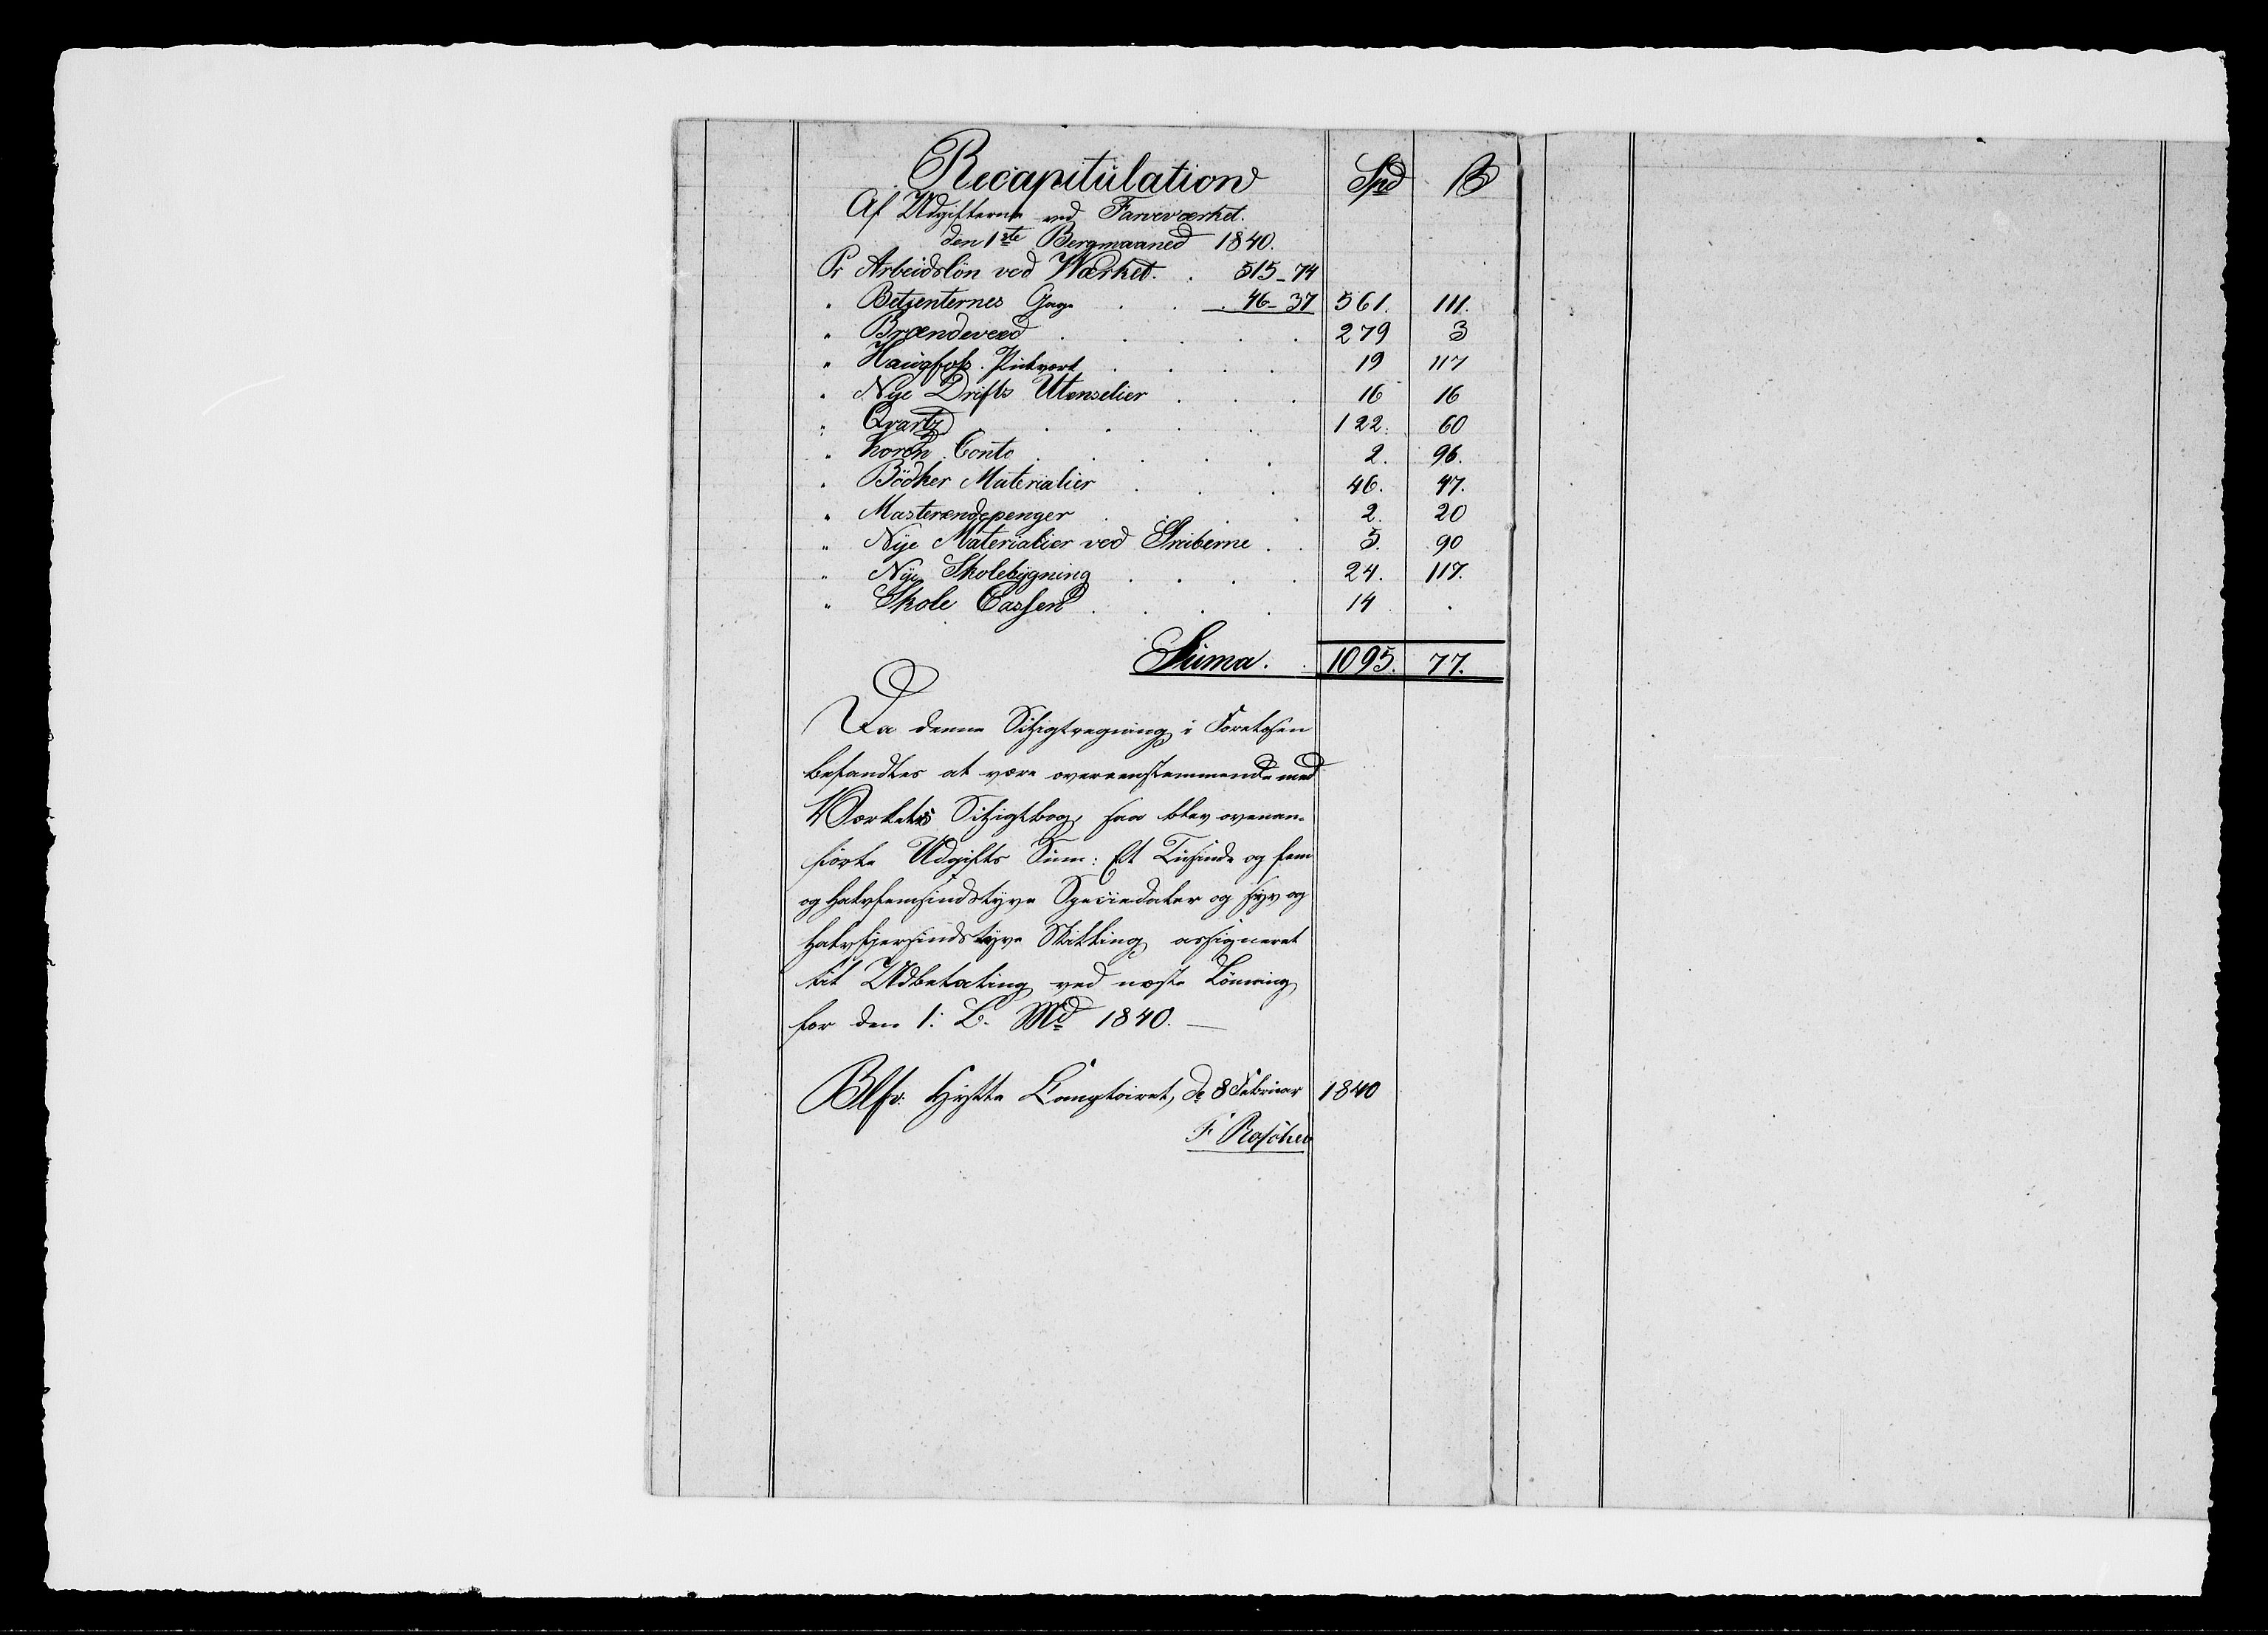 Recapitulation Spd ß
Af Udgifterne ved Farveværket.
den 1ste Bergmaaned 1840.
Pr Arbeidslön ved Wærket. . 515 - 74
" Betjenternes Gage . . 46 - 37 561. 111.
" Brændeveed . . . . . 279 3
" Haugfoss Pukværk . . . . 19 117
" Nye Drifts Utenselier . . . 16 16
" Qvartz . . . . 122. 60
" Koren Conto . . . . . 2. 96.
" Bödker Materialier . . . 46. 47.
" Masterendepenger . . . 2. 20
" Nye Materialier ved Gruberne . . 5. 90
" Nye Skolebygning . . . . 24. 117.
" Skole Cassen . . . . 14 .
Suma. . 1095. 77.
Da denne Sihgtregning i Foretosen
befandtes at være overeenstemmende med
Værkets Sihgtbog, saa blev ovenan-
förte Udgifts Sum: Et Tusinde og fem
og halvfemsindstyve Speciedaler og syv og
halvfjersindstyve Skilling assigneret
til Udbetaling ved næste Lönning
for den 1: B. Md 1840. —
Blfv: Hytte Comptoiret, d: 8 Februar 1840
F Roscher